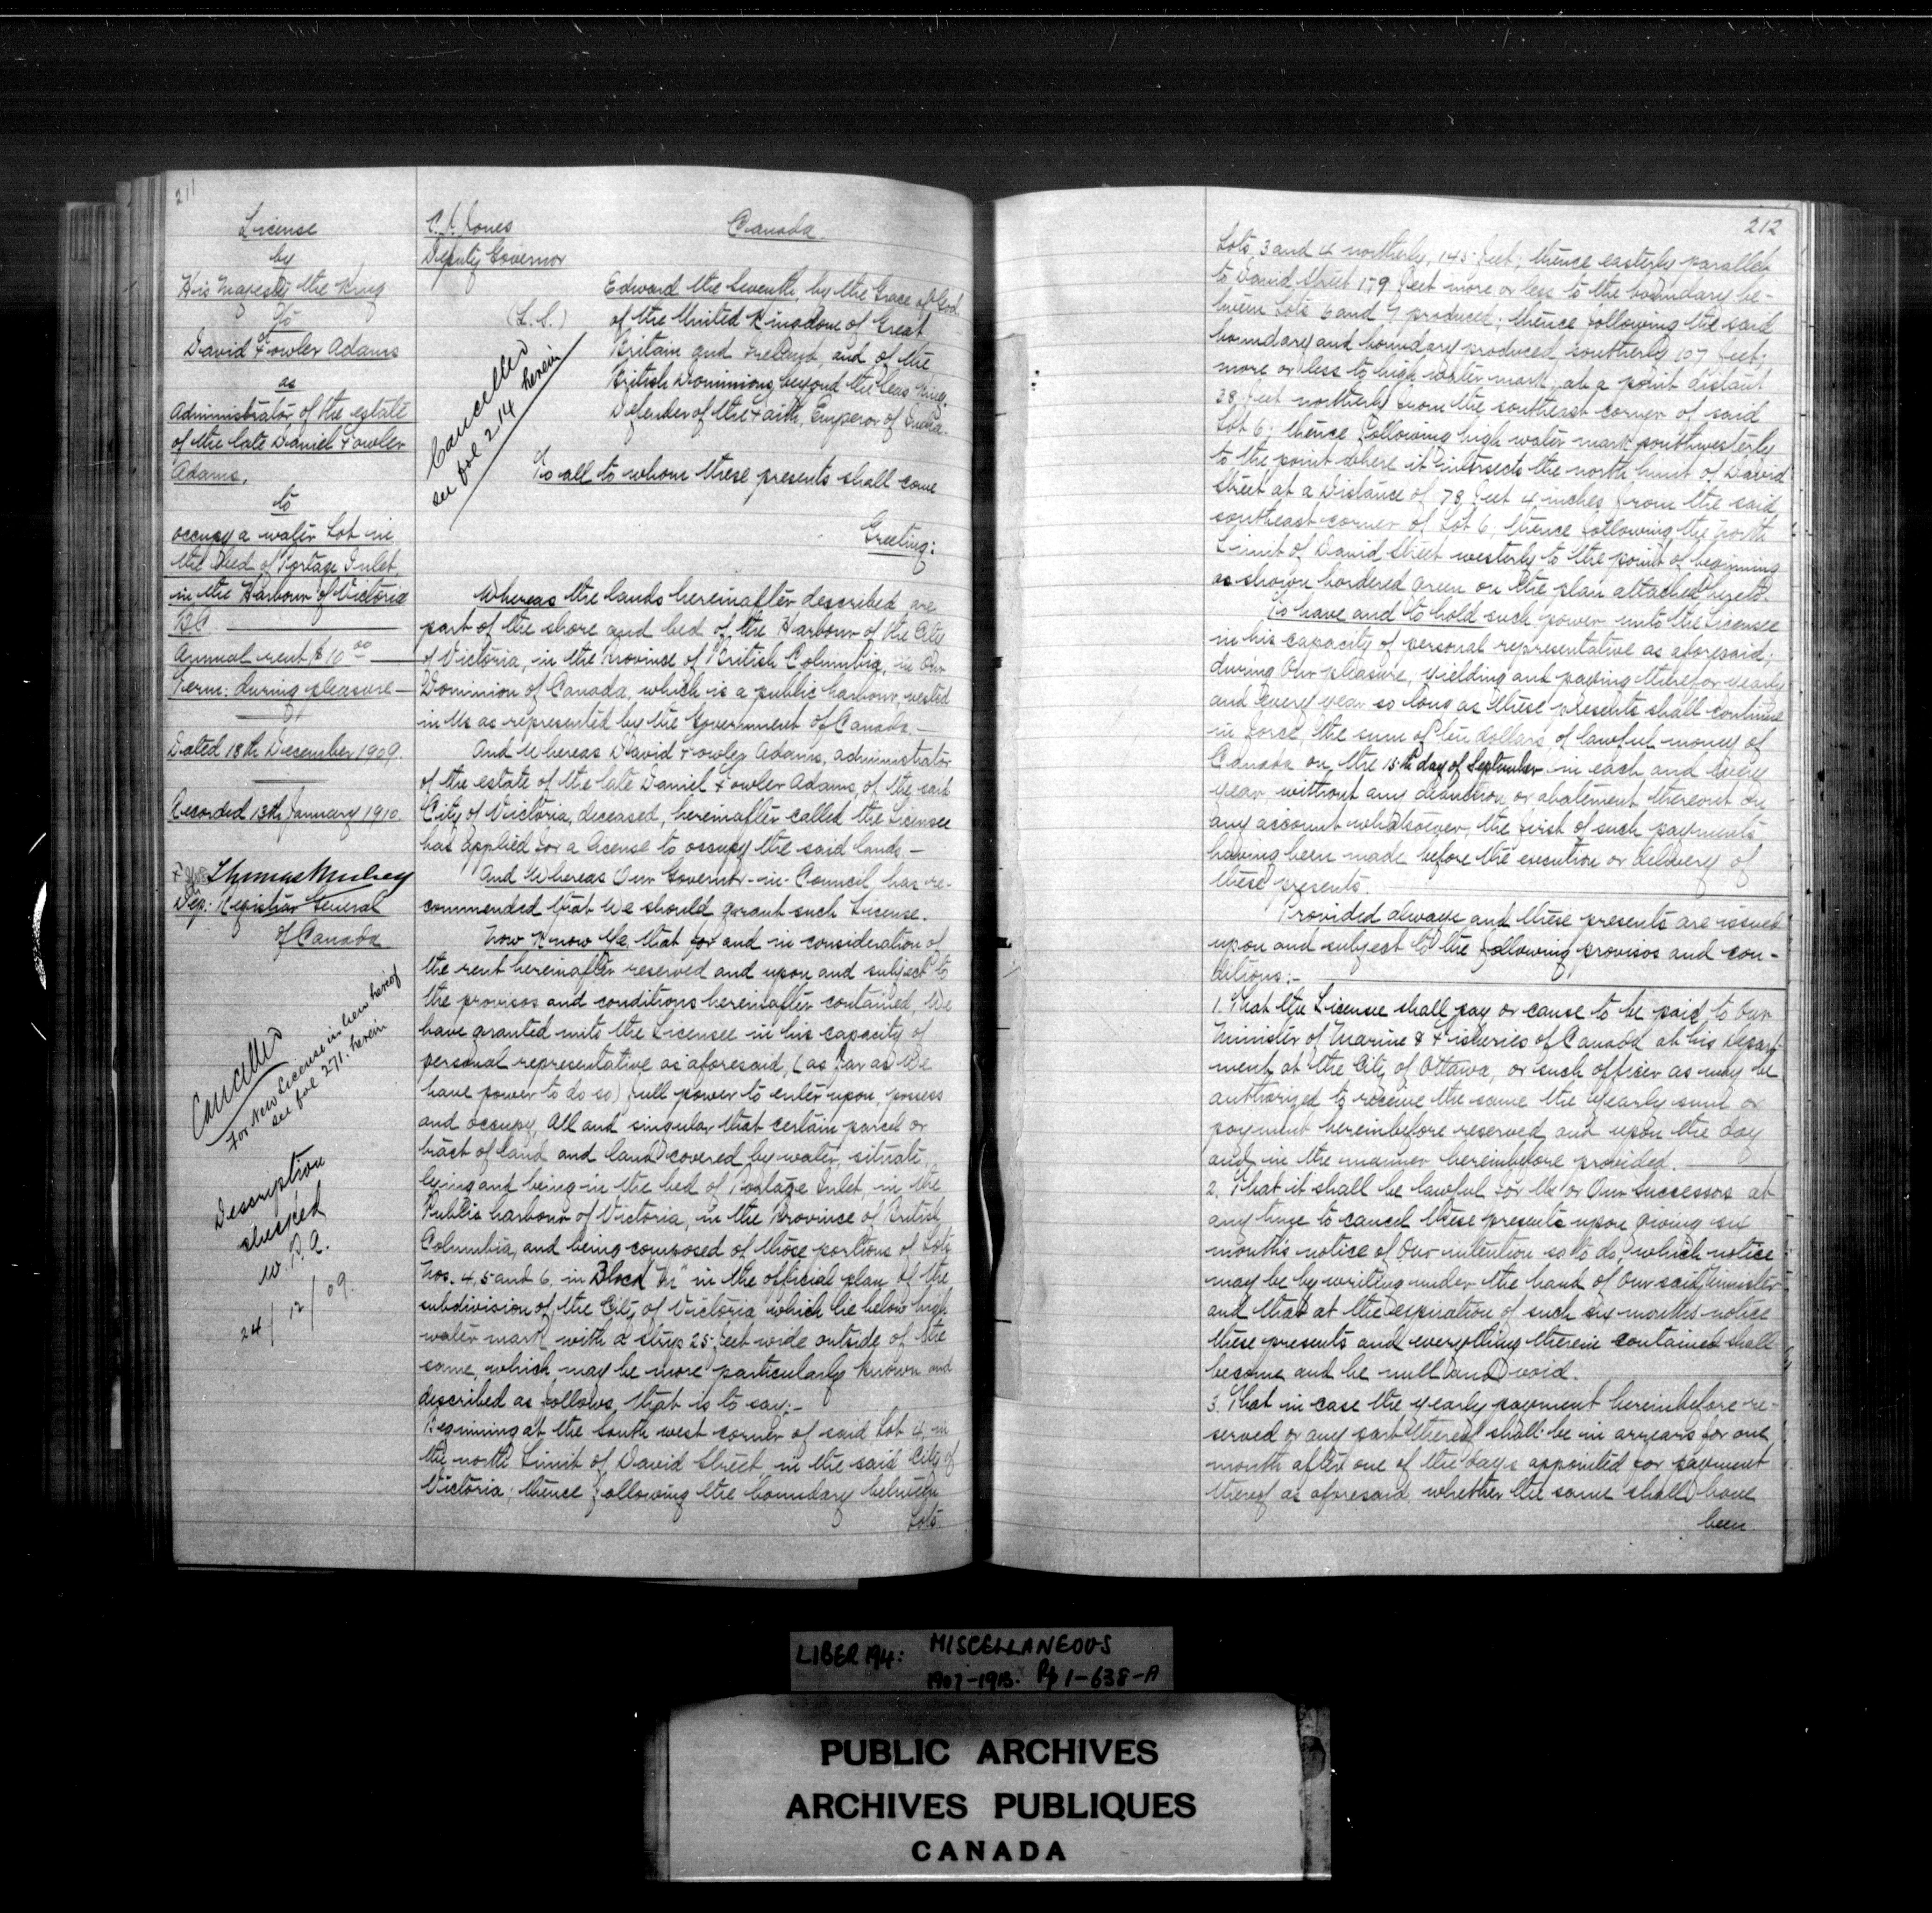 211
License
by
His Majesty the King
To
David Fowler Adams
as
Administrator of the estate
of the late Daniel Fowler
Adams.
to
occupy a water Lot in
the Bed of Portage Inlet,
in the Harbour of Victoria
B.C.
Annual rent $10.00
Term: during pleasure
Dated 18th December 1909.
Recorded 13th January 1910.
Thomas Mulvey
Dep. Registrar General
of Canada
Cancelled
For New License in lieu hereof
see fol 271. herein
Description
checked
W. P. A.
24/12/09.
Jones
Deputy Governor
Canada.
(L.S.)
Cancelled
see fol 214 herein
Edward the Seventh, by the Grace of God
of the United Kingdom of Great
Britain and Ireland, and of the
British Dominions beyond the Seas King,
Defender of the Faith, Emperor of India.
To all to whom these presents shall come
Greeting:
Whereas the lands hereinafter described are
part of the shore and bed of the Harbour of the City
of Victoria, in the Province of British Columbia, in Our
Dominion of Canada, which is a public harbour, vested
in Us as represented by the Government of Canada. –
And Whereas David Fowler Adams, administrator
of the estate of the late Daniel Fowler Adams, of the said
City of Victoria, deceased, hereinafter called the Licensee
has applied for a license to occupy the said lands –
And Whereas Our Governor-in-Council has re-
commended that We should grant such License.
Now Know Ye, that for and in consideration of
the rent hereinafter reserved and upon and subject to
the provisos and conditions hereinafter contained, We
have granted unto the Licensee in his capacity of
personal representative as aforesaid, (as far as We
have power to do so) full power to enter upon, possess
and occupy, All and singular that certain parcel or
tract of land and land covered by water, situate,
lying and being in the bed of Portage Inlet, in the
Public harbour of Victoria, in the Province of British
Columbia, and being composed of those portions of Lots
Nos. 4, 5 and 6, in Block in the official plan of the
subdivision of the City of Victoria which lie below high
water mark with a strip 25 feet wide outside of the
same, which may be more particularly known and
described as follows, that is to say:-
Beginning at the South west corner of said Lot 4, in
the north Limit of David Street in the said City of
Victoria; thence following the boundary between
Lots
212
Lots 3 and 4 northerly, 145 feet; thence easterly parallel
to David Street 179 feet more or less to the boundary be-
tween Lots 6 and 7 produced; thence following the said
boundary and boundary produced southerly 107 feet,
more or less to high water mark, at a point distant
38 feet northerly from the southeast corner of said
Lot 6; thence following high water mark southwesterly
to the point where it intersects the north limit of David
Street at a Distance of 78 feet 4 inches from the said
southeast corner of Lot 6; thence following the north
Limit of David Street westerly to the point of beginning
as shown bordered green on the plan attached hereto.
To have and to hold such power unto the Licensee
in his capacity of personal representative as aforesaid;
during Our pleasure, yielding and paying therefor yearly
and every year so long as these presents shall continue
in force, the sum of ten dollars of lawful money of
Canada on the 15th day of September in each and every
year, without any deduction or abatement thereout on
any account whatsoever, the first of such payments
having been made before the execution or delivery of
these presents.
Provided always and these presents are issued
upon and subject to the following provisos and con-
ditions:-
1. That the Licensee shall pay or cause to be paid to Our
Minister of Marine & Fisheries of Canada at his Depart-
ment at the City of Ottawa, or such officer as may be
authorized to receive the same the yearly sum or
payment hereinbefore reserved and upon the day
and in the manner hereinbefore provided.
2. That it shall be lawful for Us or Our Successors at
any time to cancel these presents upon giving six
months notice of Our intention so to do, which notice
may be by writing under the hand of Our said Minister
and that at the expiration of such six months notice
these presents and everything therein contained shall
become and be null and void.
3. That in case the yearly payment hereinbefore re-
served or any part thereof shall be in arrears for one
month after one of the days appointed for payment
thereof as aforesaid, whether the same shall have
been
LIBER 194: MISCELLANEOUS
1907-1913. Pp 1-638-A
PUBLIC ARCHIVES
ARCHIVES PUBLIQUES
CANADA